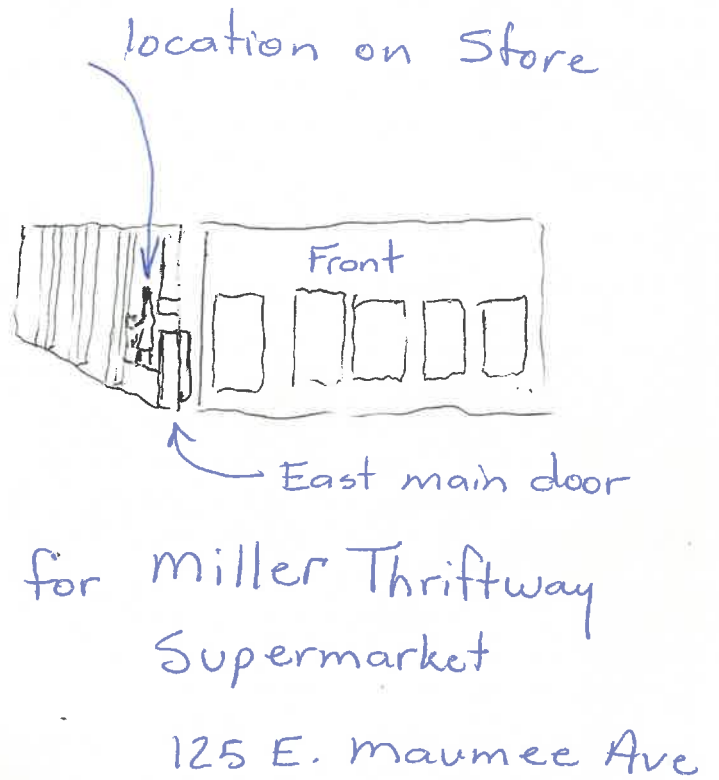 location on Store
Front
East main door
for Miller Thriftway
Supermarket
125 E. Maumee Ave